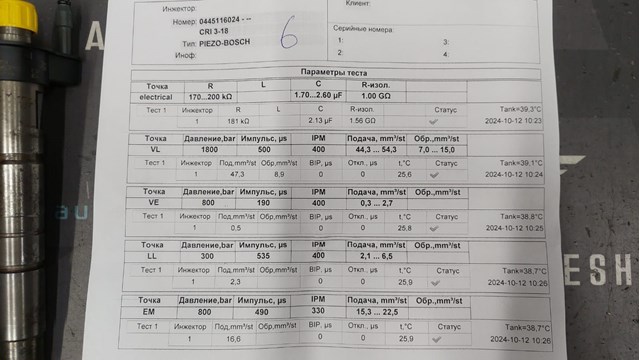 Инжектор:
Клиент:
Номер: 0445116024 - --
CRI 3-18
Тип: PIEZO-BOSCH
Иноф:
6
Серийные номера
1: 3:
2: 4:
Параметры теста
Точка R L C R-изол.
electrical 170...200 kΩ 1.70...2.60 µF 1.00 GΩ
Тест 1 Инжектор R L C R-изол. Статус Tank=39,3°C
1 181 kΩ 2.13 µF 1.56 GΩ 2024-10-12 10:23
Точка Давление,bar Импульс, µs IPM Подача, mm³/st Обр.,mm³/st
VL 1800 500 400 44,3 ... 54,3 7,0 ... 15,0
Тест 1 Инжектор Под,mm³/st Обр,mm³/st BIP, µs Откл., µs t,°C Статус Tank=39,1°C
1 47,3 8,9 0 0 25,6 2024-10-12 10:24
Точка Давление,bar Импульс, µs IPM Подача, mm³/st Обр.,mm³/st
VE 800 190 400 0,3 ... 2,7
Тест 1 Инжектор Под,mm³/st Обр,mm³/st BIP, µs Откл., µs t,°C Статус Tank=38,8°C
1 0,5 0 0 25,8 2024-10-12 10:25
Точка Давление,bar Импульс, µs IPM Подача, mm³/st Обр.,mm³/st
LL 300 535 400 2,1 ... 6,5
Тест 1 Инжектор Под,mm³/st Обр,mm³/st BIP, µs Откл., µs t,°C Статус Tank=38,7°C
1 2,3 0 0 25,9 2024-10-12 10:26
Точка Давление,bar Импульс, µs IPM Подача, mm³/st Обр.,mm³/st
EM 800 490 330 15,3 ... 22,5
Тест 1 Инжектор Под,mm³/st Обр,mm³/st BIP, µs Откл., µs t,°C Статус Tank=38,7°C
1 16,6 0 0 25,9 2024-10-12 10:26